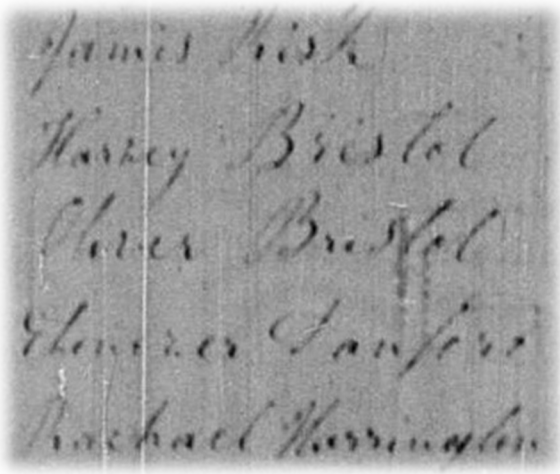 James Fisk
Harvey Bristol
Oliver Bristol
Ebenezer Sanford
Rachael Harrington